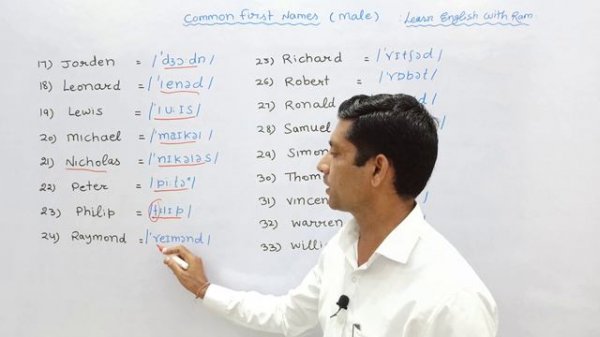 Common First Names (Male) : Learn English With Ram
17) Jorden = /ˈdʒɔːdn/
18) Leonard = /ˈlenəd/
19) Lewis = /ˈluːɪs/
20) Michael = /ˈmaɪkəl/
21) Nicholas = /ˈnɪkələs/
22) Peter = /piːtəʳ/
23) Philip = /fɪlɪp/
24) Raymond = /ˈreɪmənd/
25) Richard = /ˈrɪtʃəd/
26) Robert = /ˈrɒbət/
27) Ronald
28) Samuel
29) Simon
30) Thom
31) Vincen
32) Warren
33) Willi